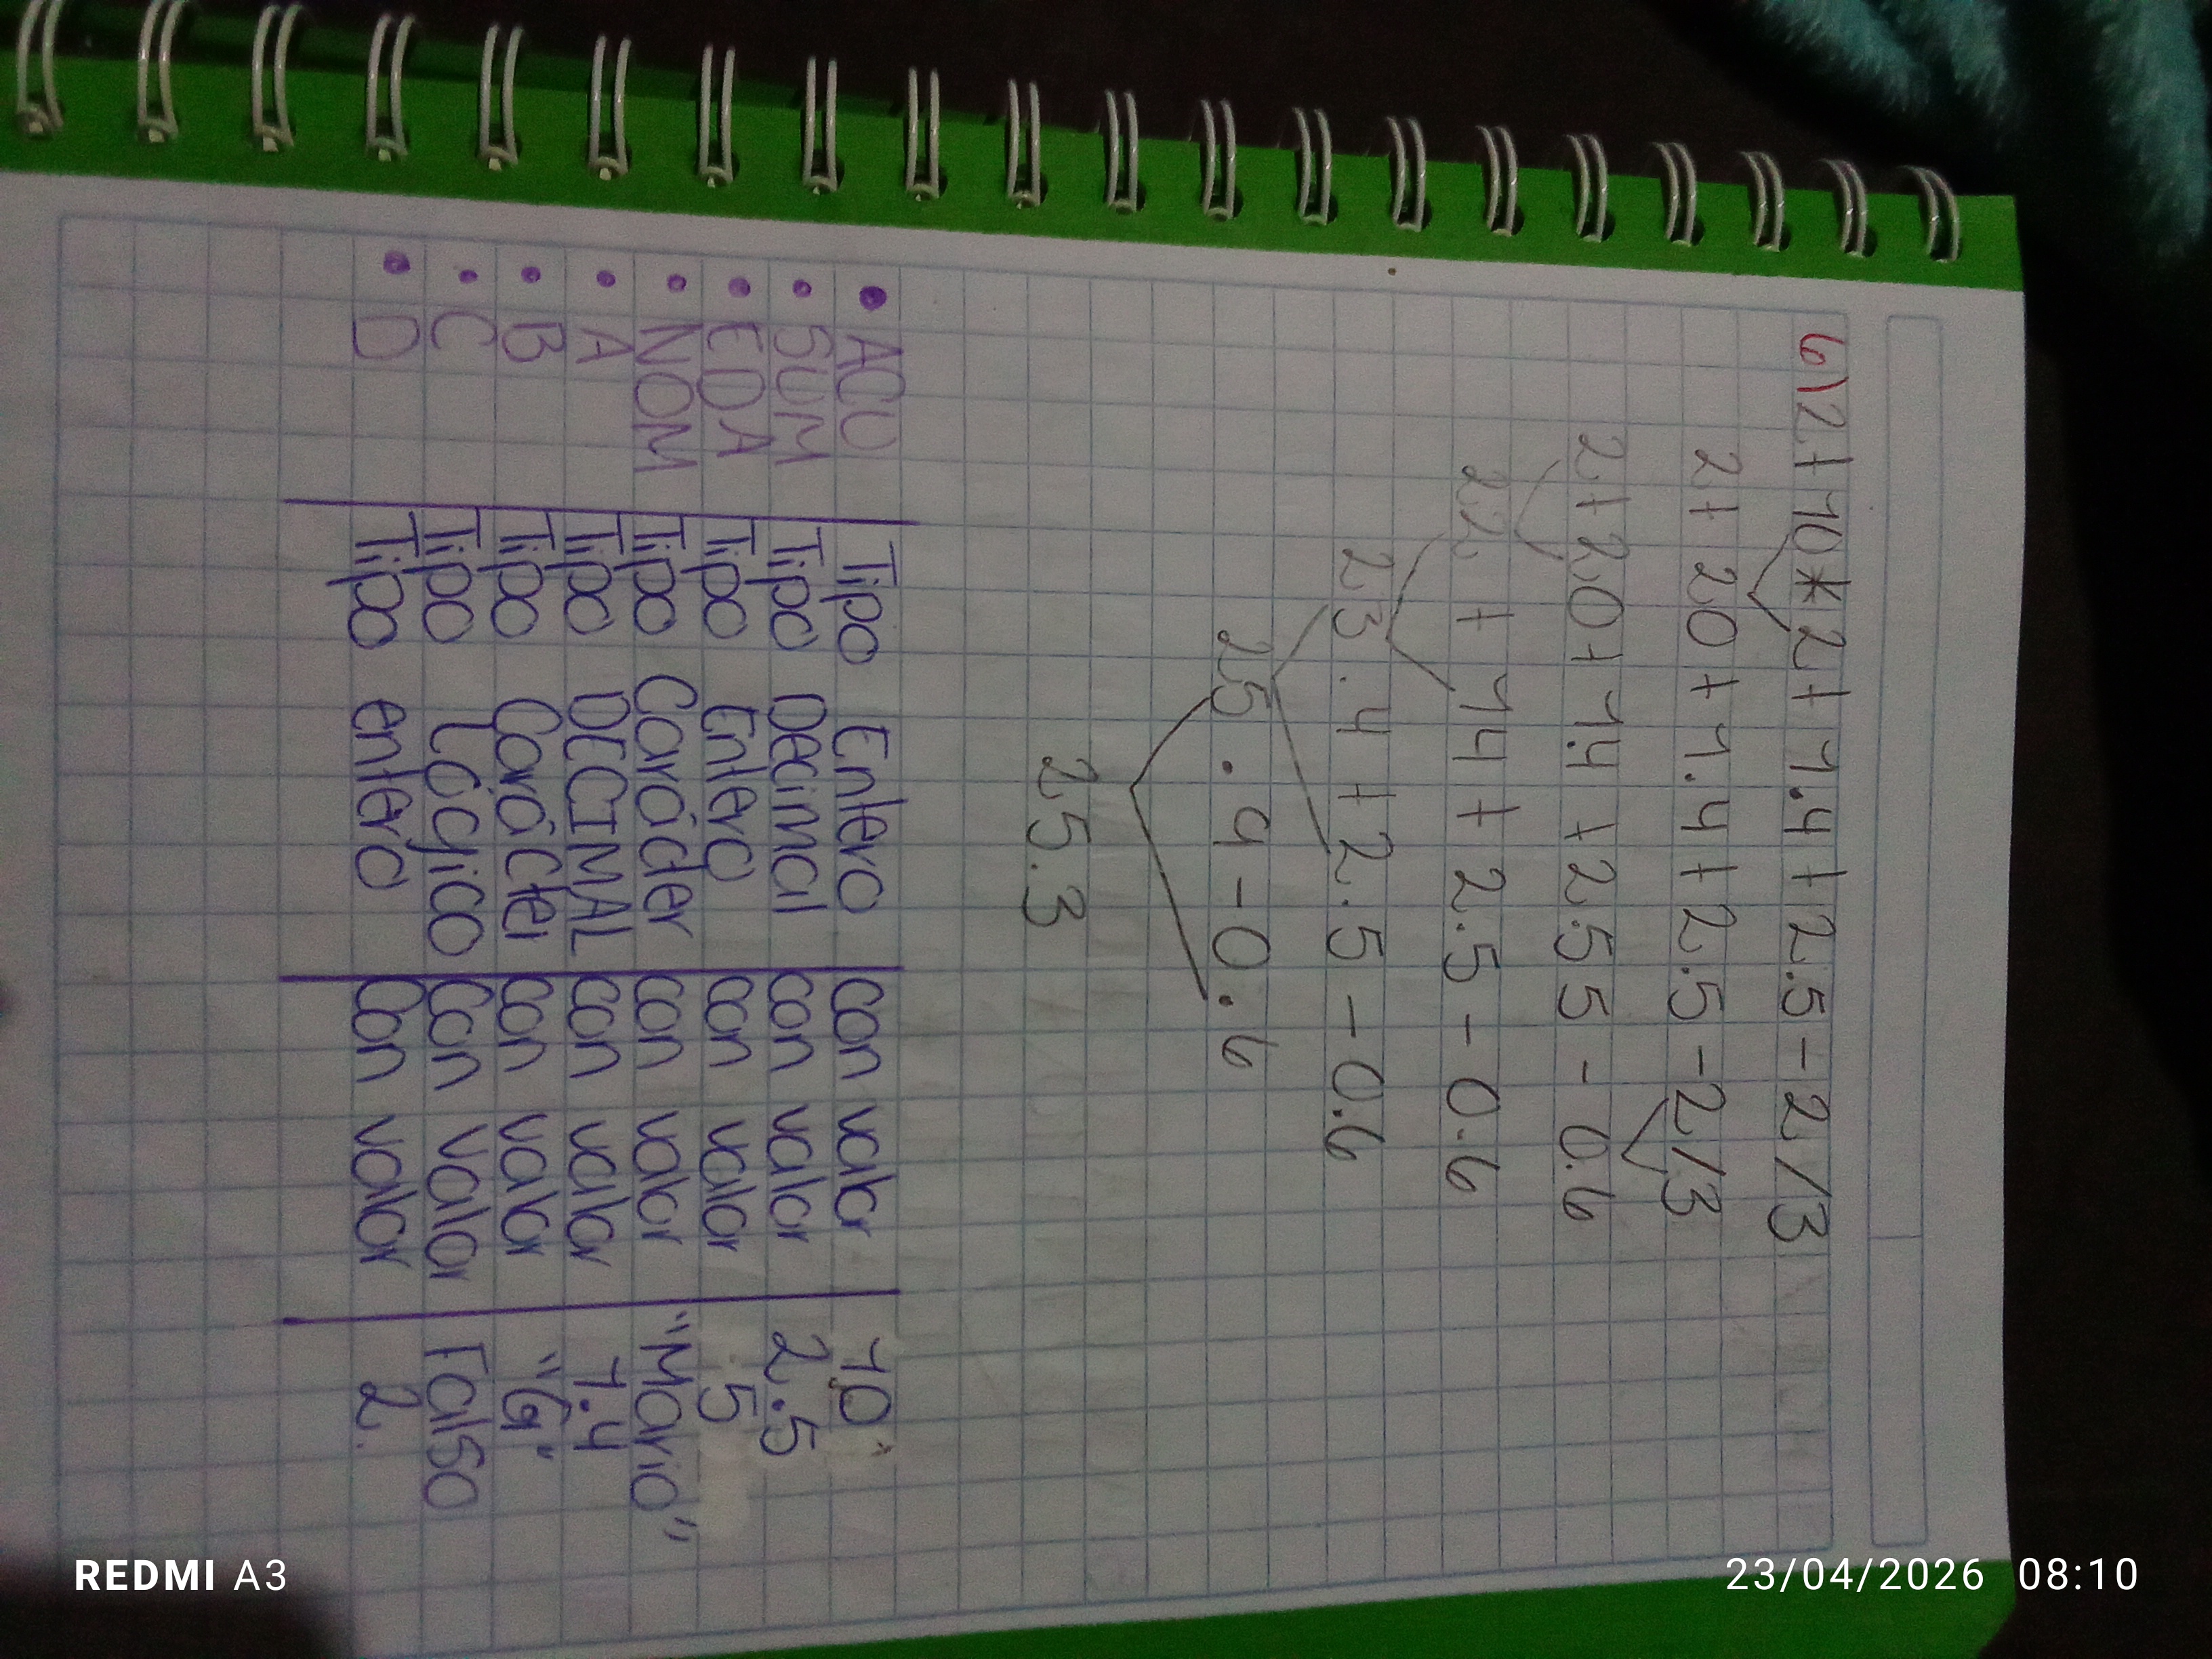 6) 2 + 10 * 2 + 1.4 + 2.5 - 2 / 3
2 + 20 + 1.4 + 2.5 - 2 / 3
2 + 20 + 1.4 + 2.5 5 - 0.6
22 + 14 + 2.5 - 0.6
23.4 + 2.5 - 0.6
25.9 - 0.6
25.3
• ACU Tipo Entero con valor 10
• SUM Tipo Decimal con valor 2.5
• EDA Tipo Entero con valor 5
• NOM Tipo Carácter con valor "Mario"
• A Tipo DECIMAL con valor 1.4
• B Tipo Carácter con valor "G"
• C Tipo Lógico Con valor Falso
• D Tipo entero Con valor 2.
REDMI A3
23/04/2026 08:10